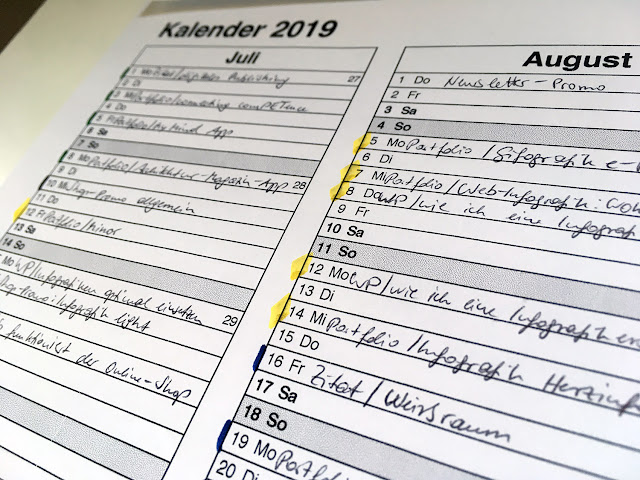 Kalender 2019
Juli
1 Mo Zitat/digitales Publishing 27
2 Di
3 Mi Portfolio/connecting comPETence
4 Do
5 Fr Portfolio/My Mind App
6 Sa
7 So
8 Mo Portfolio/Architektur-Magazin-App 28
9 Di
10 Mi Shop-Promo allgemein
11 Do
12 Fr Portfolio/Minor
13 Sa
14 So
Mo WP/Infografiken optimal einsetzen 29
Shop-Promo: Infografik light
funktioniert der Online-Shop
August
1 Do Newsletter-Promo
2 Fr
3 Sa
4 So
5 Mo Portfolio/Gifografik e-
6 Di
7 Mi Portfolio/Web-Infografik:
8 Do WP/wie ich eine Infografi
9 Fr
10 Sa
11 So
12 Mo WP/wie ich eine Infografik ers
13 Di
14 Mi Portfolio/Infografik Herzinf
15 Do
16 Fr Zitat/Weissraum
17 Sa
18 So
19 Mo Portf
20 Di